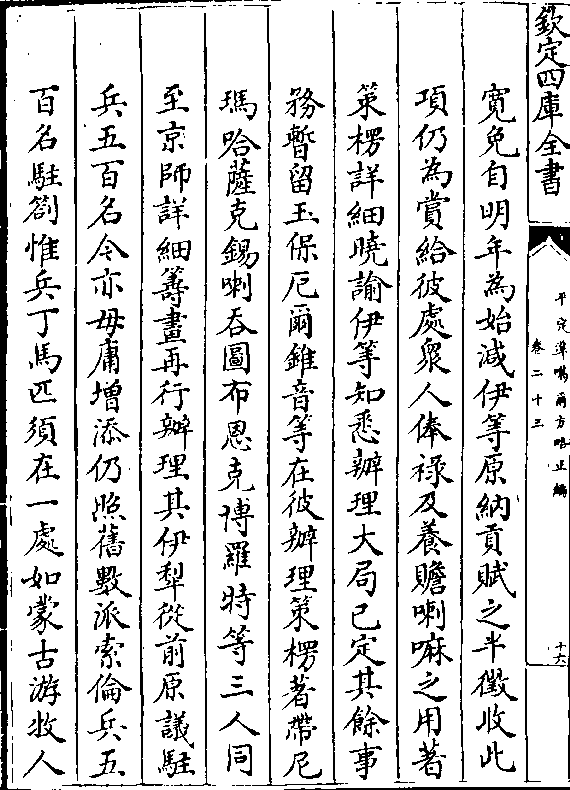 欽定四庫全書
平定準噶爾方略正編
卷二十三
十六
寛免自明年為始減伊等原納貢賦之半徴收此
項仍為賞給彼處衆人俸禄及養贍喇嘛之用著
策楞詳細曉諭伊等知悉辦理大局已定其餘事
務暫留玉保厄爾錐音等在彼辦理策楞著帶尼
瑪哈薩克錫喇呑圖布恩克博羅特等三人同
至京師詳細籌畫再行辦理其伊犁從前原議駐
兵五百名今亦毋庸增添仍照舊數派索倫兵五
百名駐劄惟兵丁馬匹須在一處如蒙古游牧人